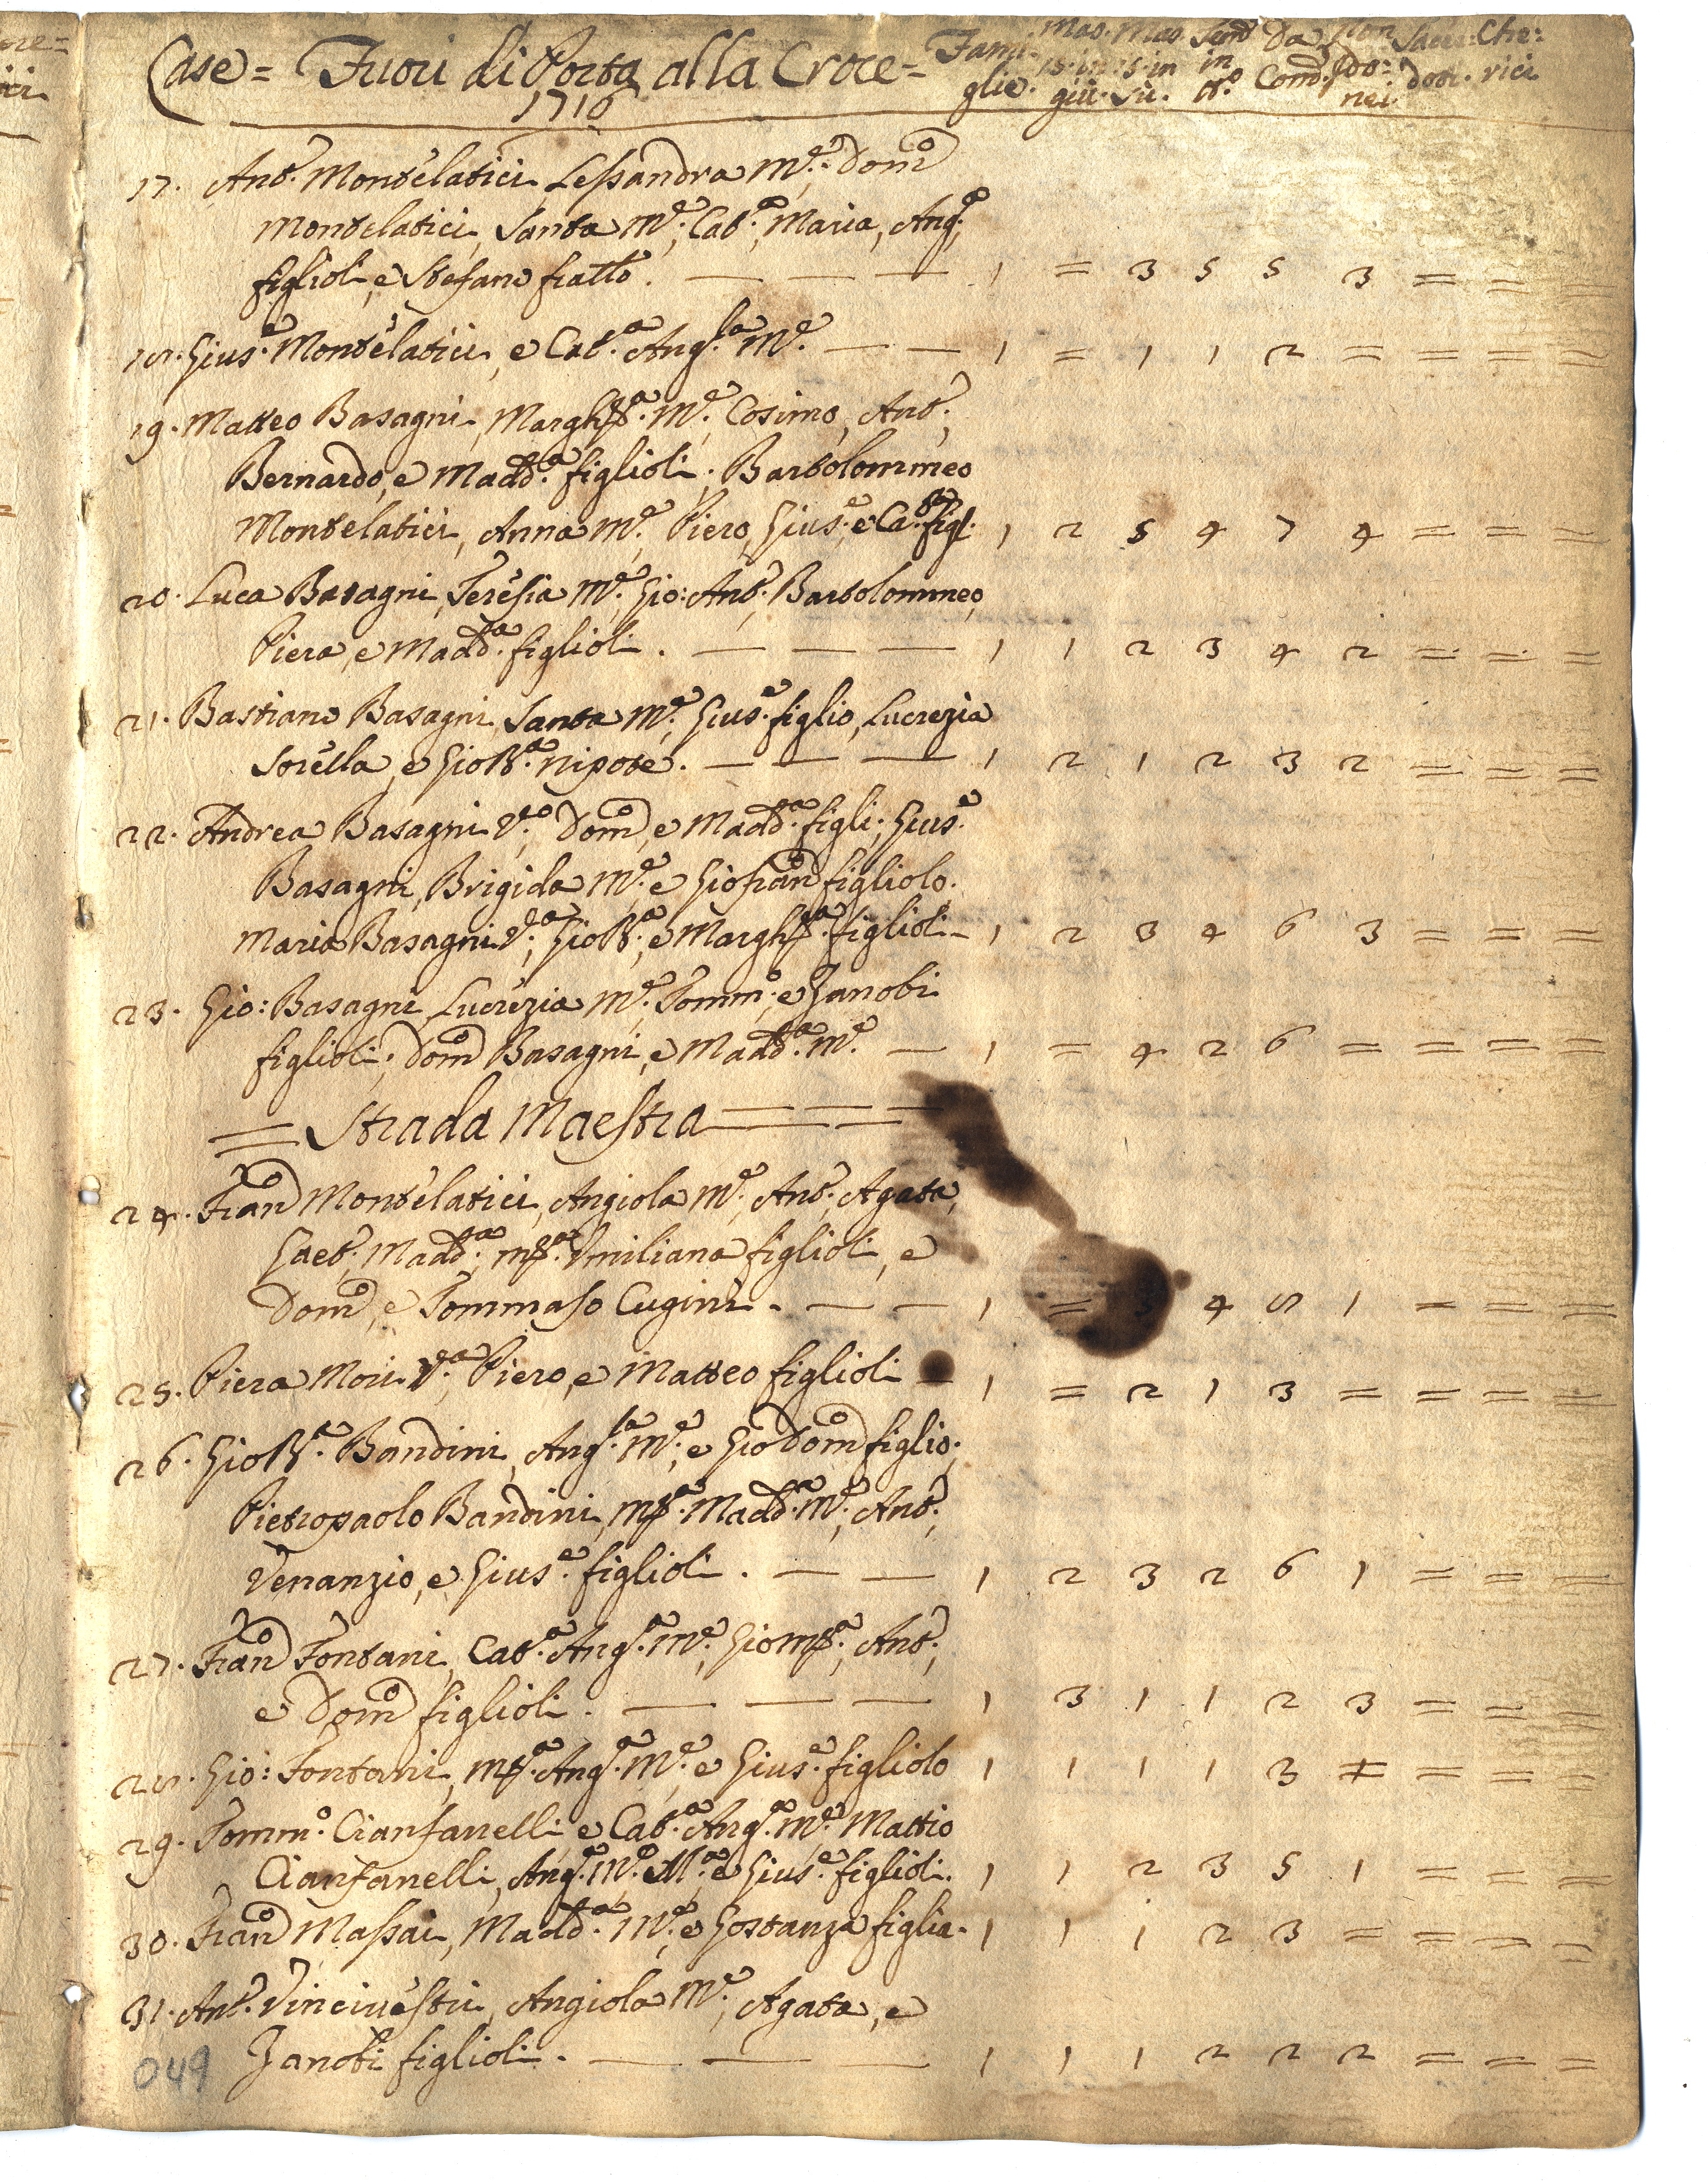 Case = Fuori di Porta alla Croce = Fami- Mas. Mas. Fem. Da Non Sacer- Che:
glie. 15. in 15. in in Com. Ido: doti. rici
giù. sù. t.º nei.
1716
17. Ant.º Montelatici, Lessandra M.e; Dom.co
Montelatici, Santa M.e; Cat.a, Maria, Ang.a
figlioli, e Stefano fratto. — — — 1 = 3 5 5 3 = = =
18. Gius.e Montelatici, e Cat.a Ang.la M.e — — 1 = 1 1 2 = = = =
19. Matteo Basagni, Margh.ta M.e Cosimo, Ant.º,
Bernardo, e Madd.a figlioli; Bartolommeo
Montelatici, Anna M.e, Piero, Gius.e, e Cat.a figl. 1 2 5 4 7 4 = = =
20. Luca Basagni, Teresia M.e, Gio: Ant.º, Bartolommeo,
Piera, e Madd.a figlioli. — — — 1 1 2 3 4 2 = = =
21. Bastiano Basagni, Santa M.e, Gius.e figlio, Lucrezia
Sorella, e GioB.a nipote. — — — 1 2 1 2 3 2 = = =
22. Andrea Basagni V.o; Dom.co, e Madd.a figli; Gius.e
Basagni, Brigida M.e e Giofran.co figliolo.
Maria Basagni V.a; GioB.a, e Margh.ta figlioli — 1 2 3 4 6 3 = = =
23. Gio: Basagni, Lucrezia M.e, Tomm.º, e Zanobi
figlioli; Dom.co Basagni, e Madd.a M.e — 1 = 4 2 6 = = = =
= Strada Maestra = = =
24. Fran.co Montelatici, Angiola M.e, Ant.º, Agata,
Gaet.º, Madd.a, M.a Umiliana figlioli, e
Dom.co, e Tommaso Cugini. — — 1 = 5 4 8 1 = = =
25. Piera Mori V.a, Piero, e Matteo figlioli — 1 = 2 1 3 = = = =
26. GioB.a Bandini, Ang.la M.e, e GioDom.co figlio;
Pietropaolo Bandini, M.a Madd.a M.e, Ant.º,
Venanzio, e Gius.e figlioli. — — 1 2 3 2 6 1 = = =
27. Fran.co Fontani, Cat.a Ang.a M.e, GioM.a, Ant.º,
e Dom.co figlioli. — — — 1 3 1 1 2 3 = = =
28. Gio: Fontani, M.a Ang.a M.e e Gius.e figliolo 1 1 1 1 3 = = = =
29. Tomm.º Cianfanelli e Cat.a Ang.a M.e Mattio
Cianfanelli, Ang.a M.e M.a e Gius.e figlioli. 1 1 2 3 5 1 = = =
30. Fran.co Massai, Madd.a M.e, e Gostanza figlia. 1 1 1 2 3 = = = =
31. Ant.º Vincinesti, Angiola M.e, Agata, e
Zanobi figlioli. — — — 1 1 1 2 2 2 = = =
049